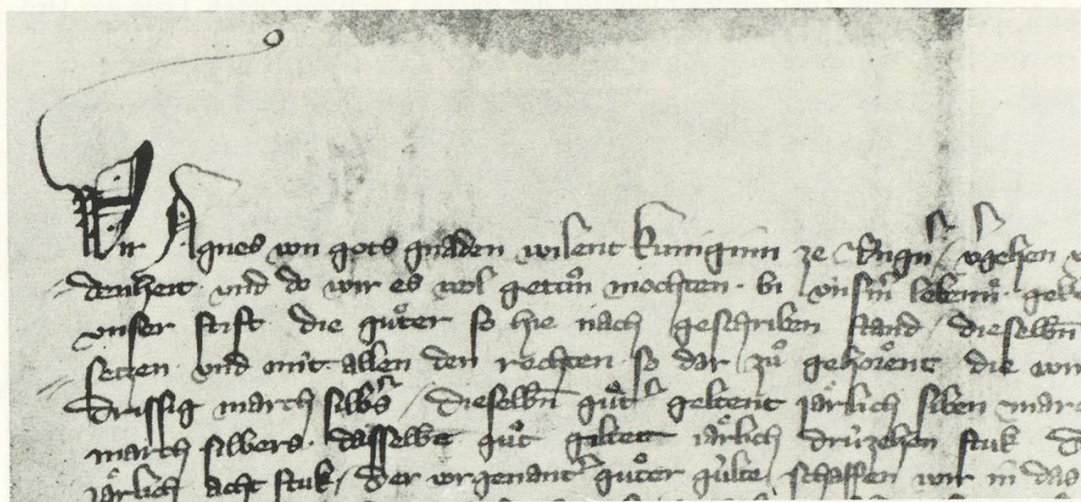 Wir Agnes von gots gnaden wilent kuniginn ze Ungͥn / vͥgehen
denheit · vnd do wir es wol getůn mochten · bi vnsͥm lebenn ·
vnser stift die gůter so hie nach geschriben stand / dieselbn̄
setzen vnd mit allen den rechten so dar zů gehoͤrent die wir
drissig march silbͥs / dieselbn̄ gůtͥ geltent jaͤrlich siben
march silbers · dasselbe gůt giltet jaͤrlich drúzehen stuk
jaͤrlich acht stuk / Der vorgenantͥ gůter gúlte schaffen wir in das